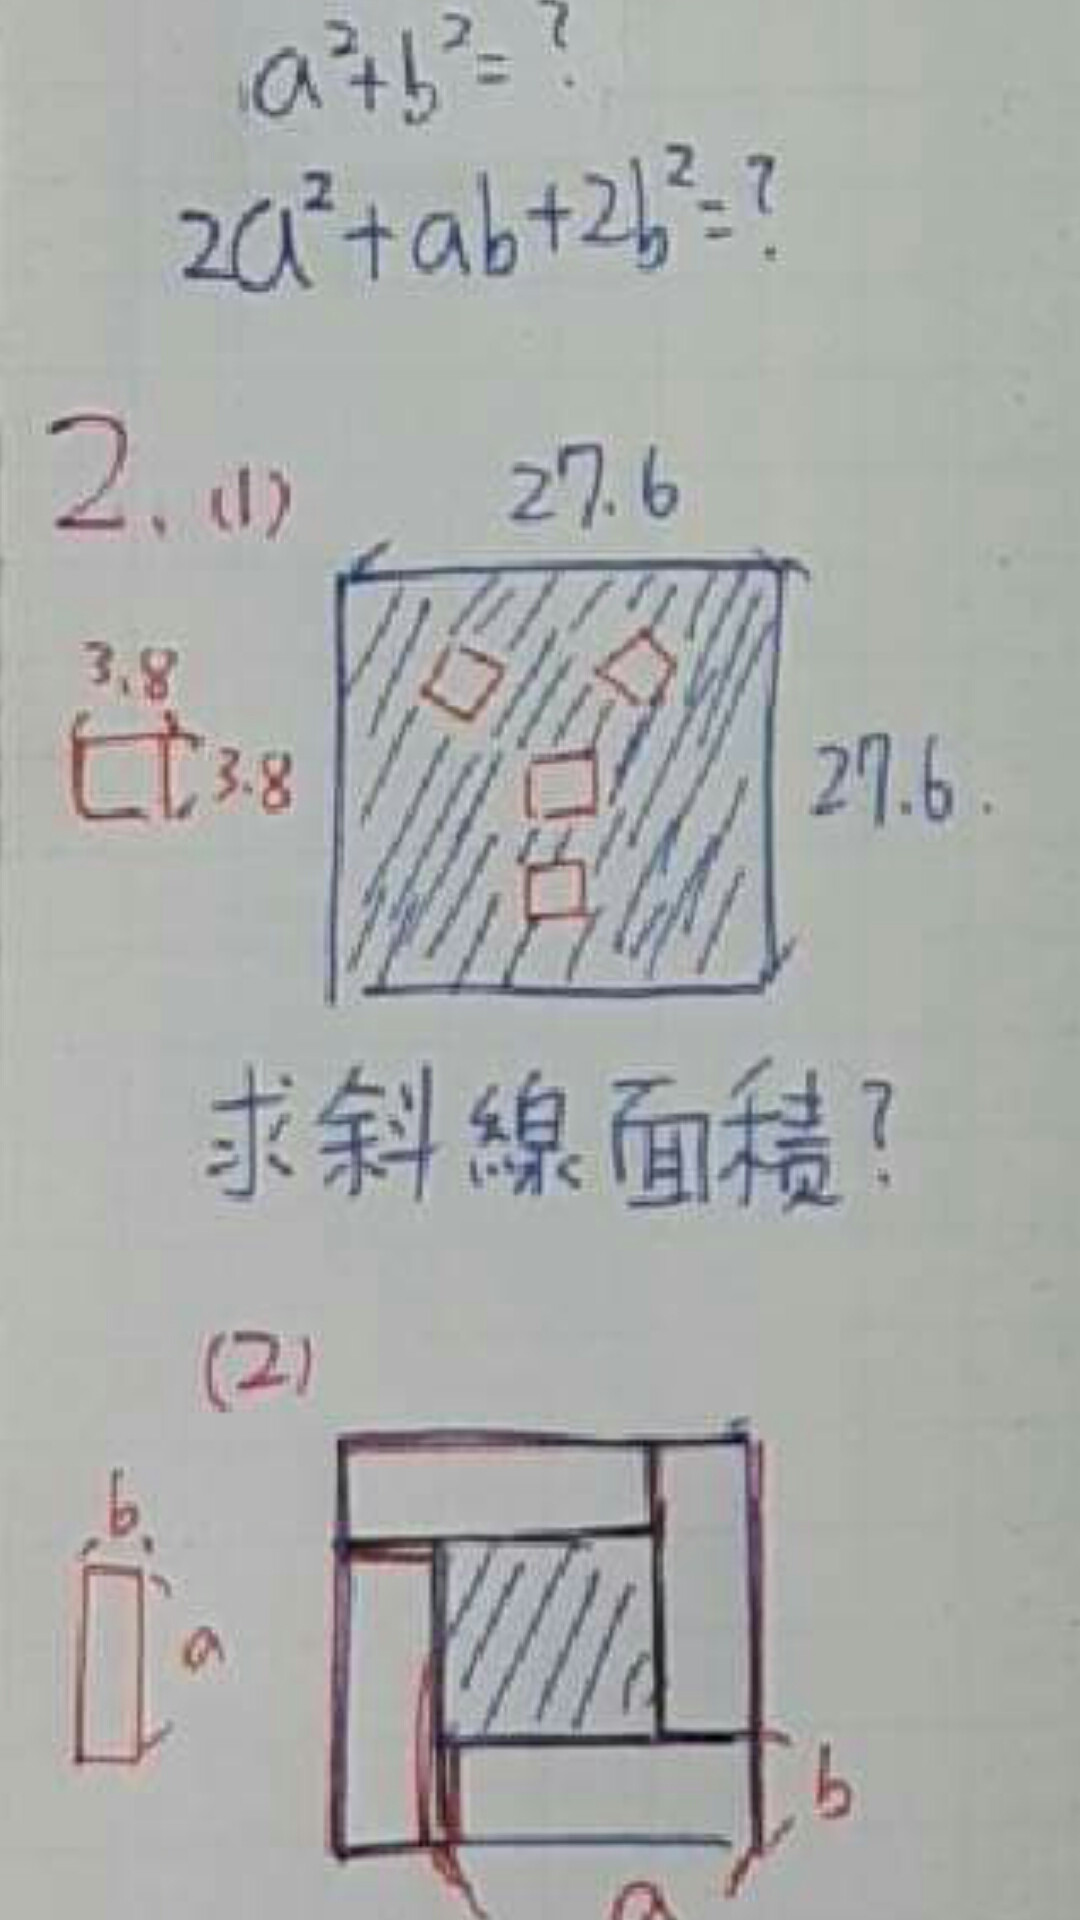 a²+b²=?
2a²+ab+2b²=?
2. (1)
27.6
3.8
3.8
27.6.
求斜線面積?
(2)
b
a
b
a